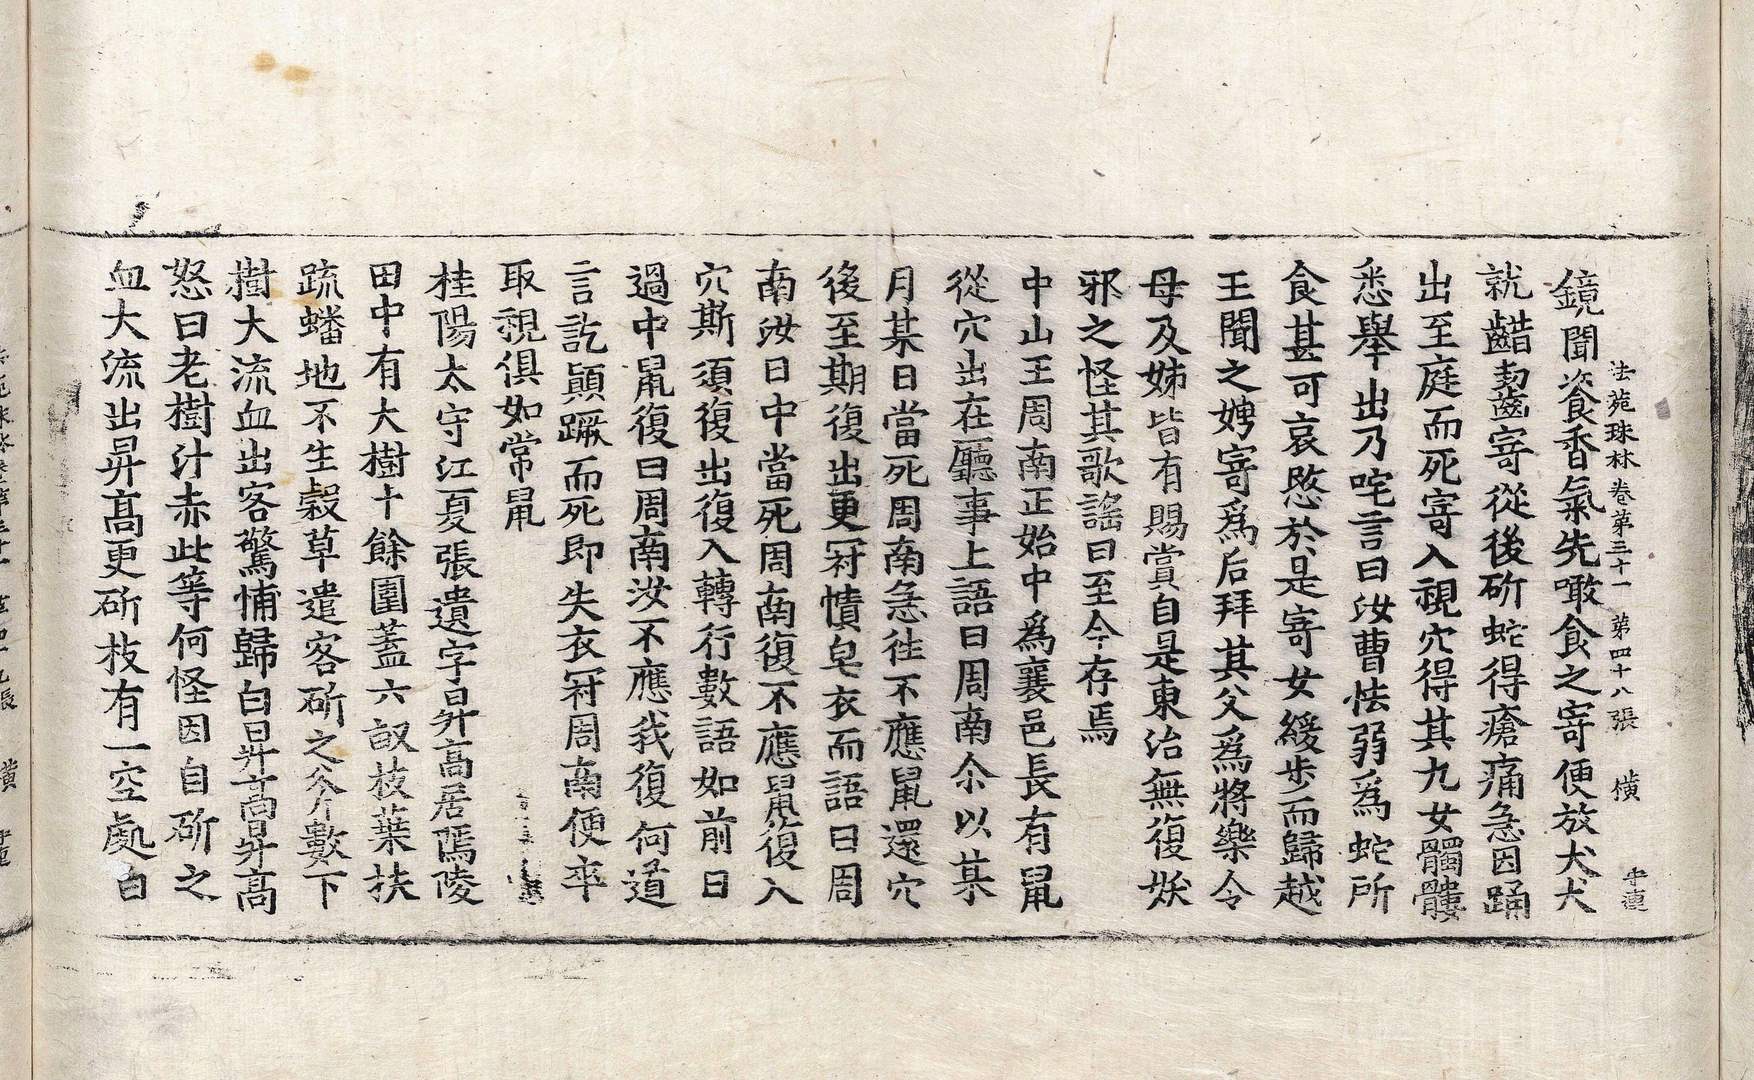 法苑珠林卷第三十一 第四十八張 橫
鏡聞湌香氣先噉食之寄便放犬犬
就齰齧寄從後斫蛇得瘡痛急因踊
出至庭而死寄入視穴得其九女髑髏
悉舉出乃咤言曰汝曹怯弱爲蛇所
食甚可哀愍於是寄女緩步而歸越
王聞之娉寄爲后拜其父爲將樂令
母及姊皆有賜賞自是東治無復妖
邪之怪其歌謠曰至今存焉
中山王周南正始中爲襄邑長有鼠
從穴出在廳事上語曰周南尒以某
月某日當死周南急往不應鼠還穴
後至期復出更冠幘皂衣而語曰周
南汝日中當死周南復不應鼠復入
穴斯須復出復入轉行數語如前日
過中鼠復曰周南汝不應我復何道
言訖顚蹶而死即失衣冠周南便卒
取視俱如常鼠
桂陽太守江夏張遺字昇高居鄢陵
田中有大樹十餘圍蓋六畝枝葉扶
疏蟠地不生穀草遣客斫之斧數下
樹大流血出客驚怖歸白昇高昇高
怒曰老樹汁赤此等何怪因自斫之
血大流出昇高更斫枝有一空處白